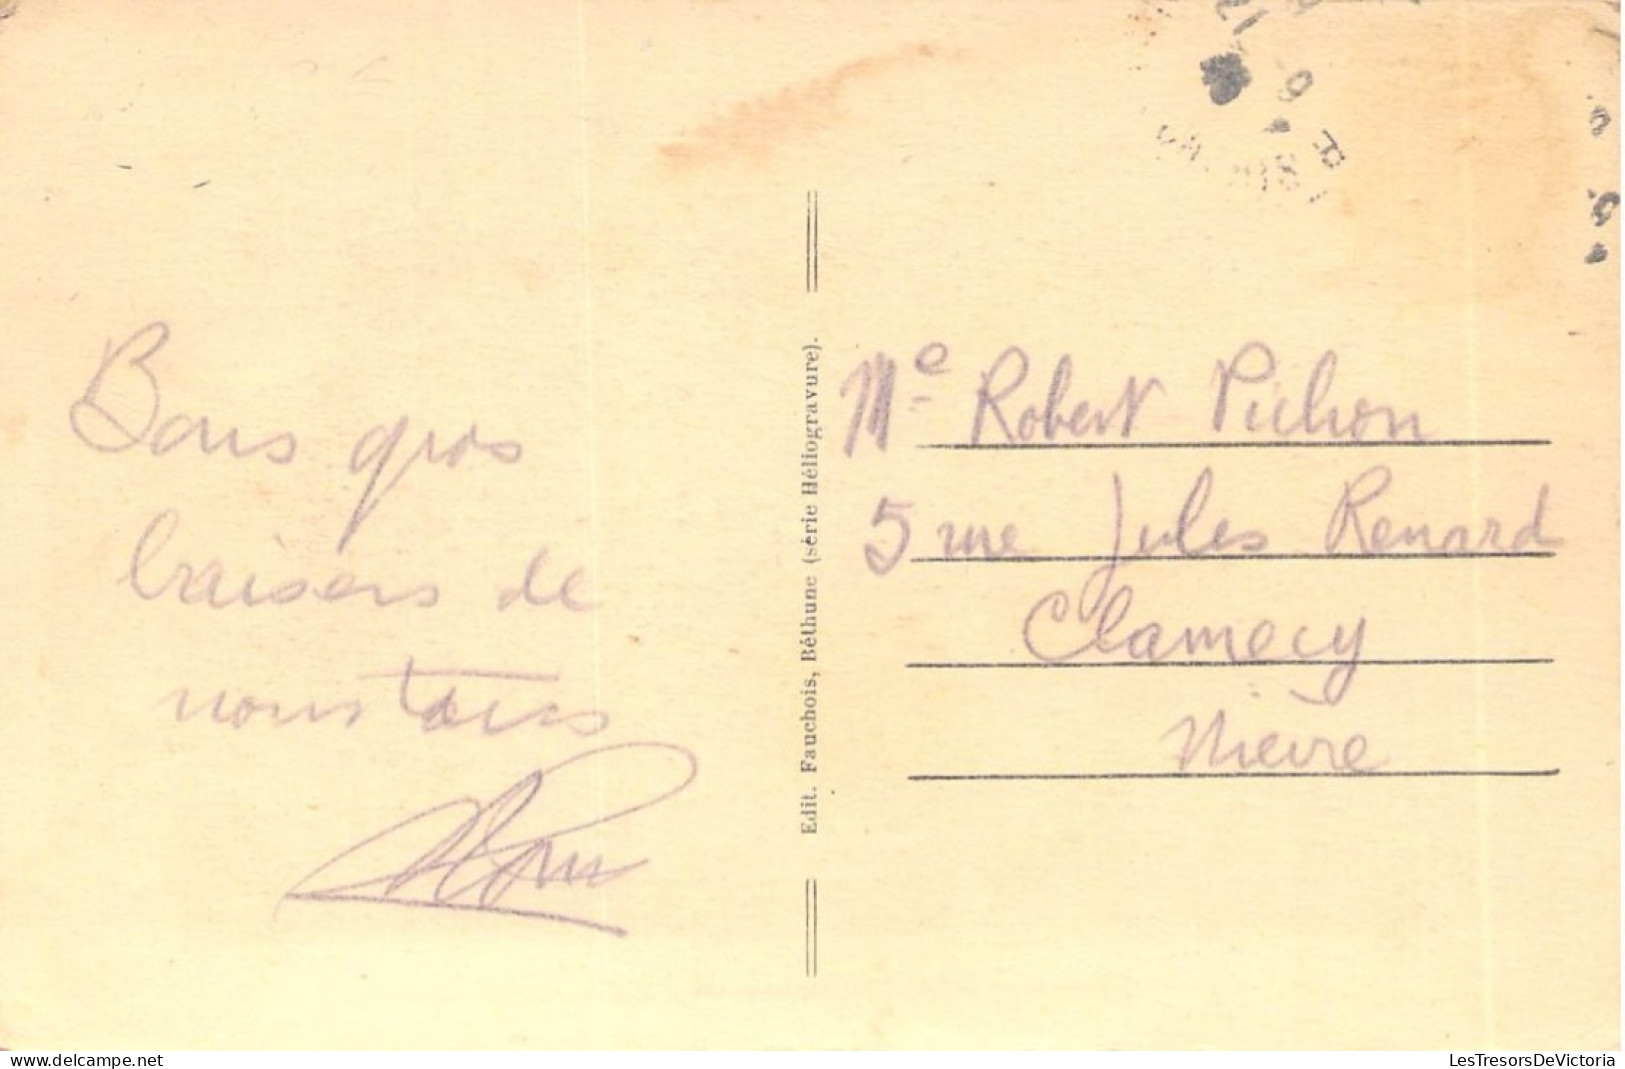 Bons gros
baisers de
nous tous
Edit. Fauchois, Béthune (série Héliogravure).
Me Robert Pichon
5 rue Jules Renard
Clamecy
Nièvre
www.delcampe.net
LesTresorsDeVictoria